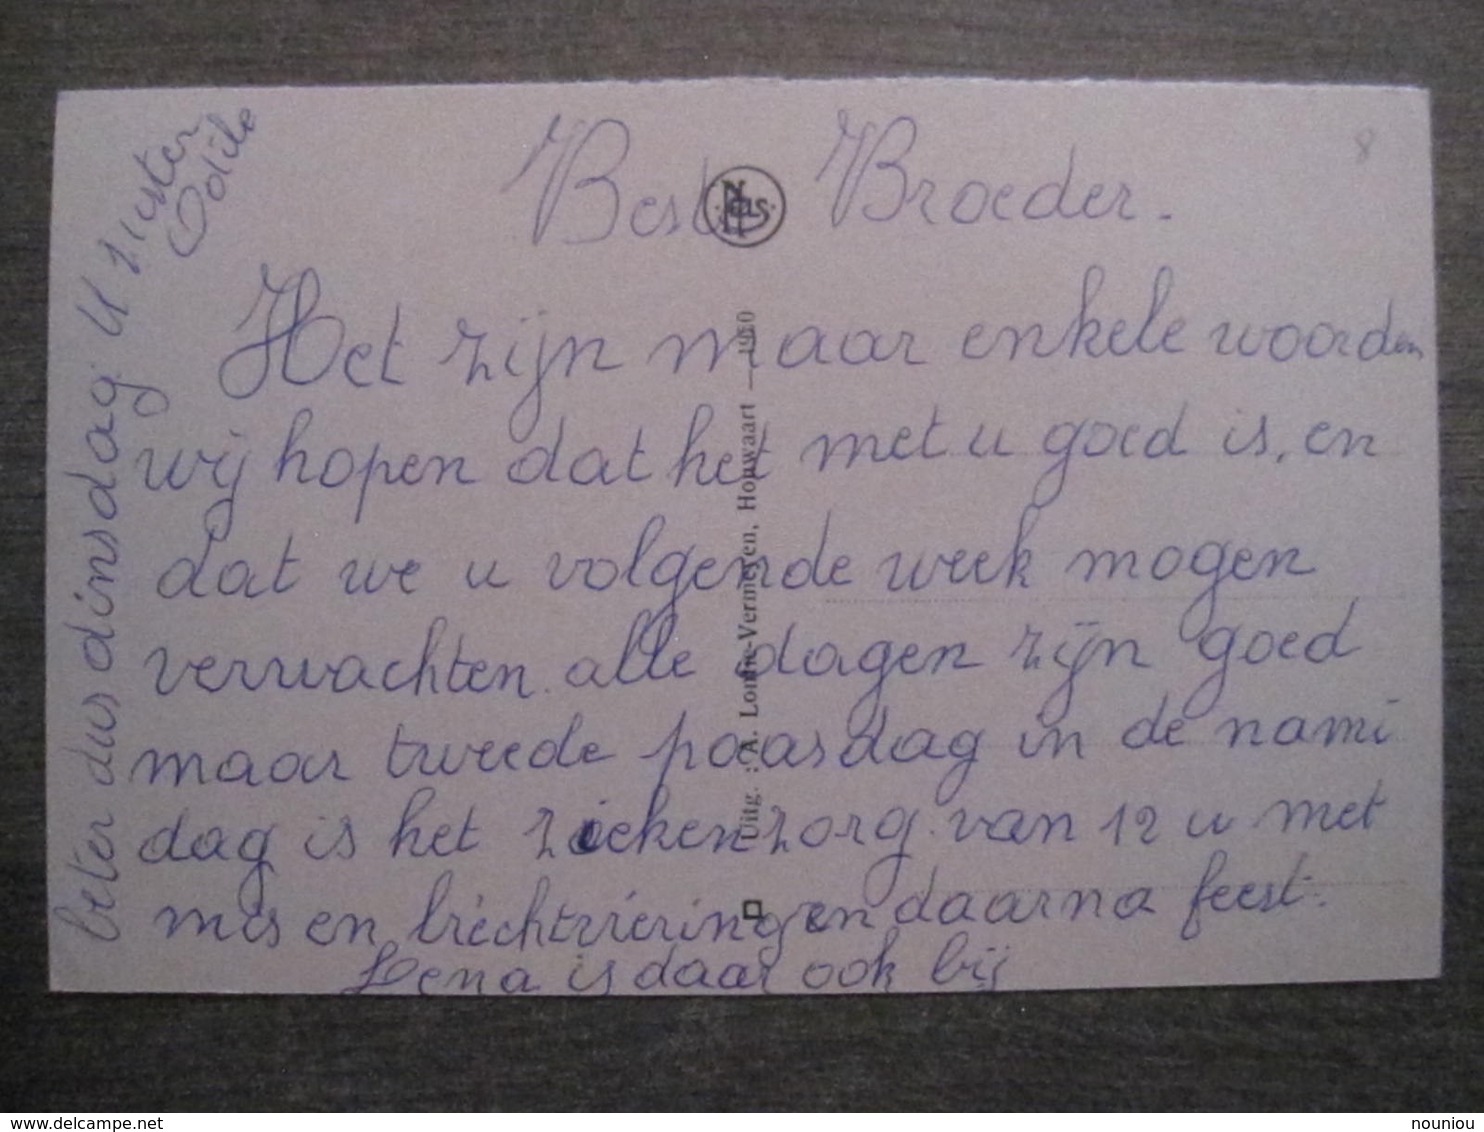 Beste Broeder.
8
Het zijn maar enkele woorden
wij hopen dat het met u goed is, en
dat we u volgende week mogen
verwachten. alle dagen zijn goed
maar tweede paasdag in de nami
dag is het ziekenzorg van 12 u met
mis en biechtviering en daarna feest.
Lena is daar ook bij
beter dus dinsdag. U zuster
Odile
Nels
Uitg. : A. Lomé-Vermeyen, Houwaart — 1950
nouniou
delcampe.net